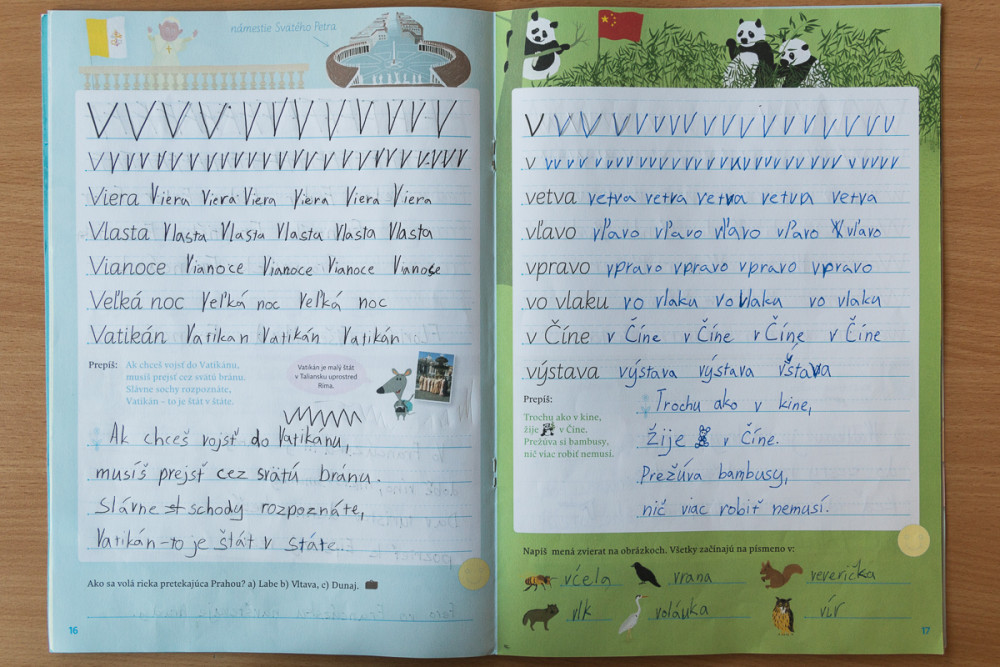 námestie Svätého Petra
V V V V V V V V V V V V V
v v v v v v v v v v v v v v v v v v v v v v v v
Viera Viera Viera Viera Viera Viera Viera
Vlasta Vlasta Vlasta Vlasta Vlasta Vlasta
Vianoce Vianoce Vianoce Vianoce Vianoce
Veľká noc Veľká noc Veľká noc
Vatikán Vatikan Vatikán Vatikán
Prepíš: Ak chceš vojsť do Vatikánu,
musíš prejsť cez svätú bránu.
Slávne sochy rozpoznáte,
Vatikán – to je štát v štáte.
Vatikán je malý štát
v Taliansku uprostred
Ríma.
Ak chceš vojsť do Vatikánu,
musíš prejsť cez svätú bránu.
Slávne schody rozpoznáte,
Vatikán – to je štát v státe.
Ako sa volá rieka pretekajúca Prahou? a) Labe b) Vltava, c) Dunaj.
16
V V V V V V V V V V V V V V V V V
v v v v v v v v v v v v v v v v v v v v v v v v v v
vetva vetva vetva vetva vetva vetva
vľavo vľavo vľavo vľavo vľavo vľavo
vpravo vpravo vpravo vpravo vpravo
vo vlaku vo vlaku vo vlaku vo vlaku
v Číne v Číne v Číne v Číne v Číne
výstava výstava výstava vštava
Prepíš:
Trochu ako v kine,
žije v Číne.
Prežúva si bambusy,
nič viac robiť nemusí.
Trochu ako v kine,
žije v Číne.
Prežúva bambusy,
nič viac robiť nemusí.
Napíš mená zvierat na obrázkoch. Všetky začínajú na písmeno v:
včela vrana veverička
vlk volávka vír
17